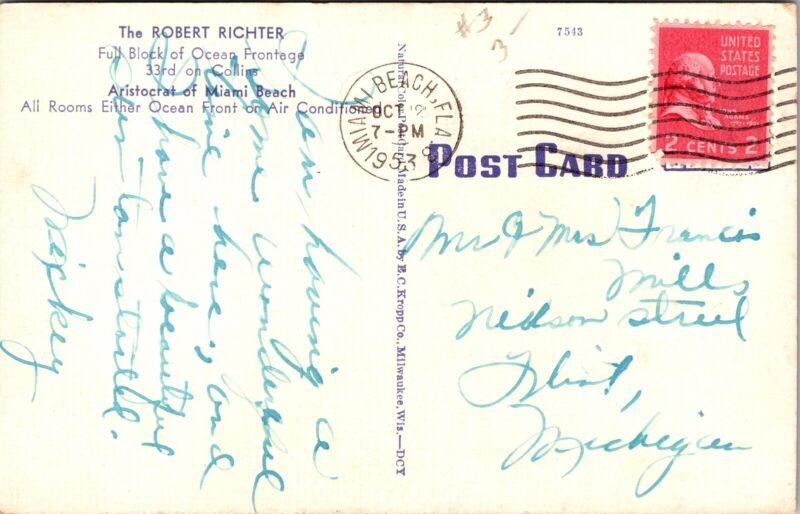 The ROBERT RICHTER
Full Block of Ocean Frontage
33rd on Collins
Aristocrat of Miami Beach
All Rooms Either Ocean Front or Air Conditioned
I am having a
some wonderful
time here, and
have a beautiful
sun tan started.
Mickey
Natural Color Post Card Made in U.S.A. by E.C. Kropp Co., Milwaukee, Wis.—DCY
#3
3
7543
MIAMI BEACH, FLA
OCT
7-PM
1953
UNITED
STATES
POSTAGE
JOHN
ADAMS
2 CENTS 2
POST CARD
Mr & Mrs Francis
Mills
Street
Flint,
Michigan